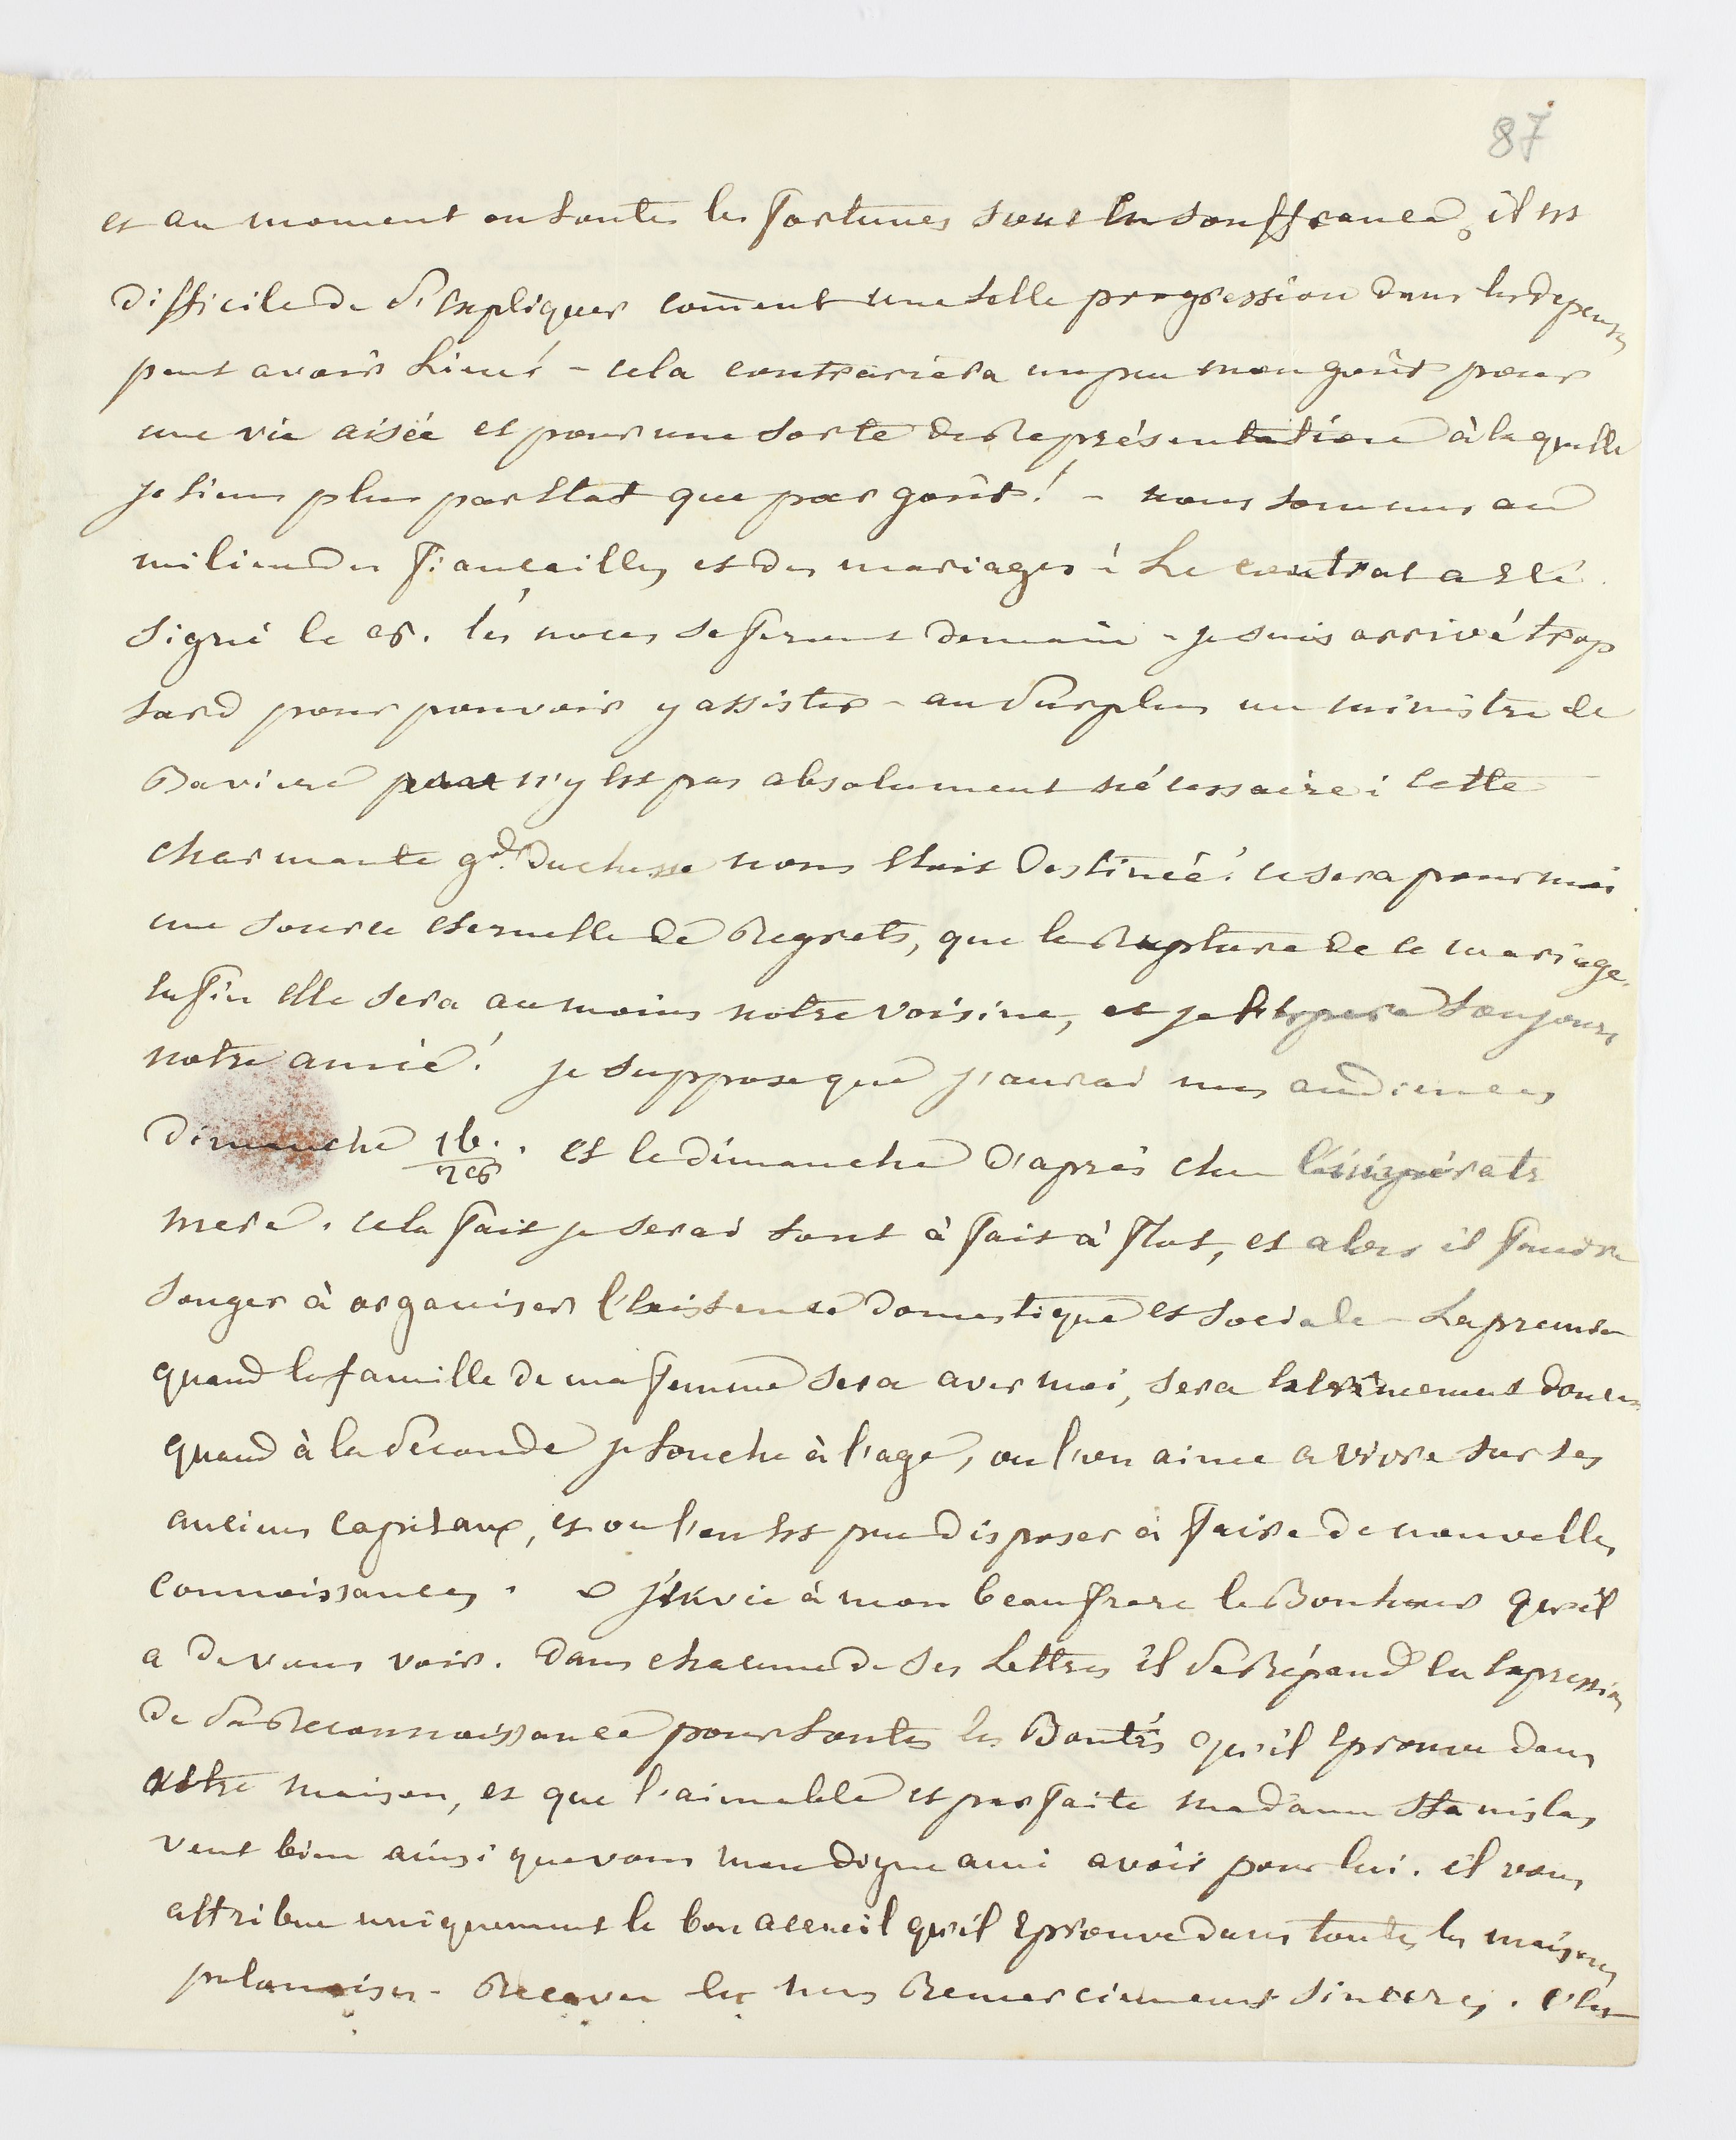 87
et au moment ou toutes les fortunes sont en souffrance, il est
difficile de s'expliquer coment une telle progression dans les depenses
peut avoir Lieu! - cela contrariera un peu mon goût pour
une vie aisée et pour une sorte de Représentation à la quelle
je tiens plus par Etat que par goût! - nous sommes au
milieu des fiancailles et des mariages! Le contrat a eté
signé le les noces se feront demain - je suis arrivé trop
tard pour pouvoir y assister - au surplus un ministre de
Baviere n'y est pas absolument nécessaire! cette
charmante gde Duchesse nous etait Destinée! ce sera pour moi
une source eternelle de Regrets, que la Rupture de ce mariage.
enfin elle sera au moins notre voisine, et je l'espere toujours
notre amie! je suppose que j'aurai mes audiences
Dimanche 16. et le dimanche d'après chez l'impératr
mere. cela fait je serai tout à fait à flot, et alors il faudra
songer à organiser l'existence domestique et sociale - La premiere
quand la famille de ma femme sera avec moi, sera extrêmement douce
quand à la seconde je touche à l'age, ou l'on aime a vivre sur ses
anciens capitaux, et ou l'on est peu disposer à faire de nouvelles
connoissances. j'envie à mon beau frere le Bonheur qu'il
a de vous voir. dans chacune de ses Lettres il se Répand en expression
de sa Reconnoissance pour toutes les Bontés qu'il eprouve dans
votre maison, et que l'aimable et parfaite madame Stanislas
veut bien ainsi que vous mon digne ami avoir pour lui. il vous
attribue uniquement le bon accueil qu'il eprouve dans toutes les maisons
polonaises - Recever en mes Remerciemens sinceres. c'est